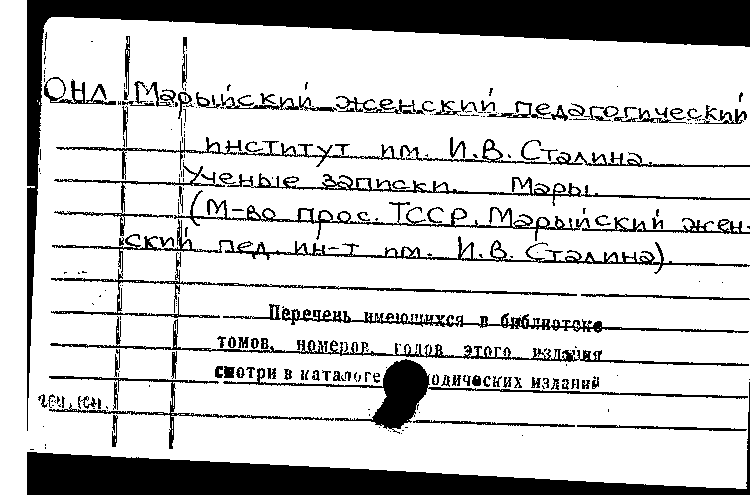 ОНЛ Марыйский женский педагогический
институт им. И.В. Сталина.
Ученые записки. Мары.
(М-во прос. ТССР. Марыйский жен-
ский пед. ин-т им. И.В. Сталина).
Перечень имеющихся в библиотеке
томов, номеров, годов этого издания
смотри в каталоге изданий